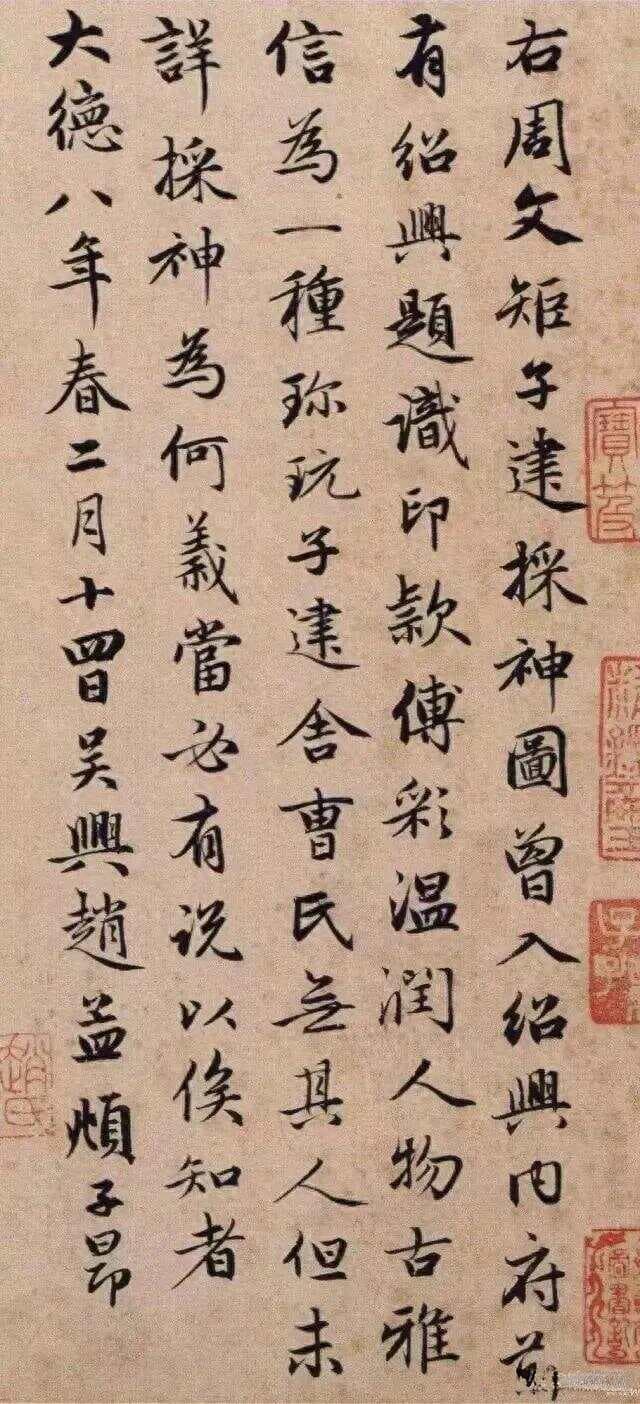 右周文矩子建採神圖曾入紹興内府
有紹興題識印款傅彩温潤人物古雅
信為一種珎玩子建舍曹氏無其人但未
詳採神為何義當必有説以俟知者
大德八年春二月十四日吴興趙孟頫子昂
趙氏